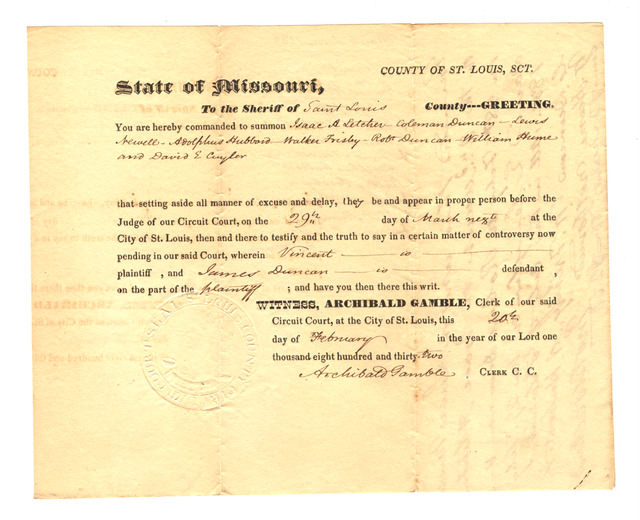 COUNTY OF ST. LOUIS, SCT.
State of Missouri,
To the Sheriff of Saint Louis County---GREETING.
You are hereby commanded to summon Isaac A Letcher - Coleman Duncan - Lewis
Newell - Adolphus Hubbard - Walker Frisby - Robt Duncan - William Hume
and David E Cuyler
that setting aside all manner of excuse and delay, they be and appear in proper person before the
Judge of our Circuit Court, on the 29th day of March next at the
City of St. Louis, then and there to testify and the truth to say in a certain matter of controversy now
pending in our said Court, wherein Vincent is
plaintiff , and James Duncan is defendant ,
on the part of the plaintiff ; and have you then there this writ.
WITNESS, ARCHIBALD GAMBLE, Clerk of our said
Circuit Court, at the City of St. Louis, this 20th
day of February in the year of our Lord one
thousand eight hundred and thirty-two
Archibald Gamble CLERK C. C.